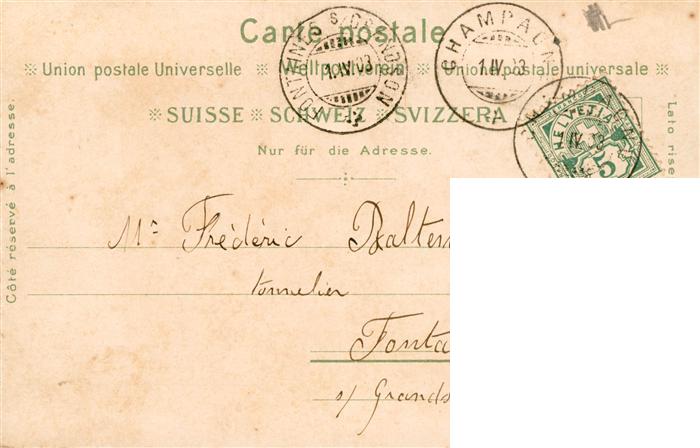 Carte postale
※ Union postale Universelle ※ Weltpostverein ※ Unione postale universale ※
※ SUISSE ※ SCHWEIZ ※ SVIZZERA
Nur für die Adresse.
Côté réservé à l'adresse.
Lato rise
S/GRANDSON
1.IV.03
CHAMPAGNE
1.IV.03
HELVETIA
5
Mr Frédéric
tonnelier
Fonta
s/ Grands